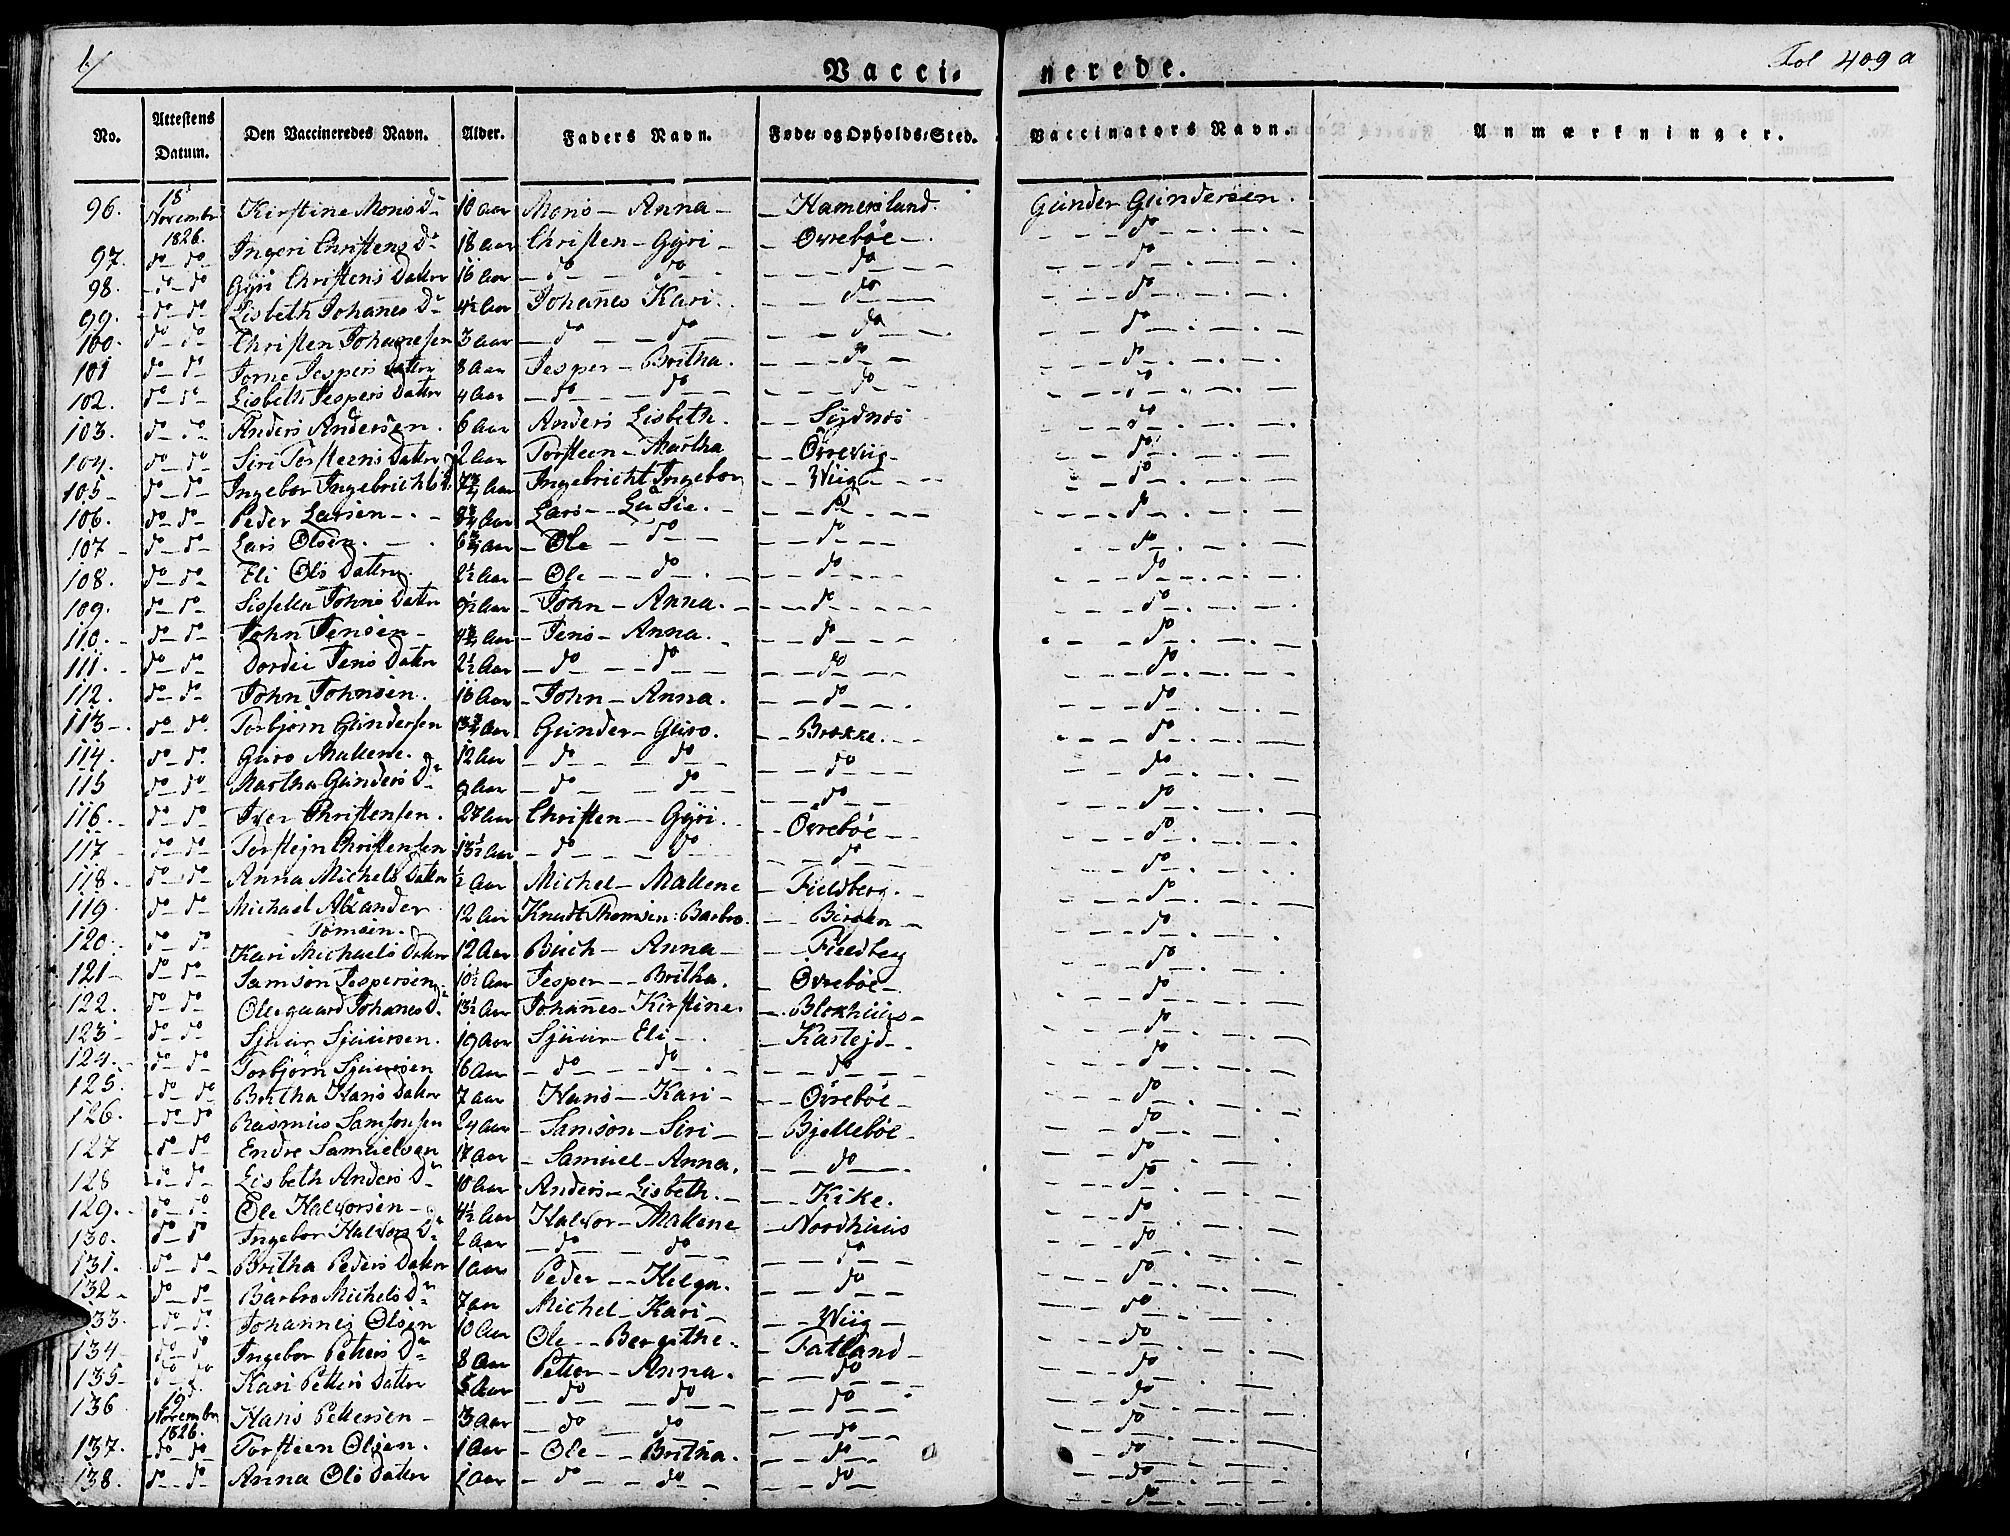 Vaccinerede.
Fol 409 a
No. Attestens Datum. Den Vaccineredes Navn. Alder. Faders Navn. Føde- og Opholds-Sted. Vaccinators Navn. Anmærkninger.
96. 18 Novembr 1826. Kirstine Mons Dr 10 Aar Mons - Anna - Hamersland. Gunder Gundersen.
97. do do Ingeri Christens Dr 18 Aar Christen - Gyri - Øvrebøe - do
98. do do Gyri Christens Datter 16 Aar do do do do
99. do do Lisbeth Johanes Dr 4½ Aar Johanes Kari. do do
100. do do Christen Johanesen 3 Aar do do do do
101 do do Jorne Jespers Datter 8 Aar Jesper - Britha. do do
102. do do Lisbeth Jespers Datter 4 Aar do do do do
103. do do Anders Andersen. 6 Aar Anders Lisbeth. Sydnes do
104. do do Siri Torsteens Datter 2 Aar Torsteen - Martha Øvreviig do
105 do do Ingebor Ingebrichts D. 7¾ Aar Ingebricht Ingebor Wiig do
106. do do Peder Larsen 8¾ Aar Lars - Lusie. do do
107 do do Lars Olsen. 6¾ Aar Ole do do do
108. do do Eli Ols Datter 2½ Aar Ole do do do
109. do do Sisselle Johns Datter 9½ Aar John - Anna. do do
110. do do John Jensen 4¾ Aar Jens - Anna. do do
111. do do Dordei Jens Datter 2½ Aar do do do do
112. do do John Johnsen. 16 Aar John - Anna. do do
113 do do Torbjørn Gundersen 13¾ Aar Gunder - Guro. Brokke. do
114. do do Guro Mallene. 12 Aar do do do do
115 do do Martha Gunders Dr 9 Aar do do do do
116. do do Iver Christensen. 27 Aar Christen - Gyri. Øvrebøe do
117 do do Torstejn Christensen 13½ Aar do do do do
118. do do Anna Michels Datter ½ Aar Michel - Mallene Fieldberg. do
119 do do Michael Alxander Tomsen. 12 Aar Knudt Thomsen: Barbro. Birgen do
120. do do Kari Michaels Datter 12 Aar Buch - Anna Fieldberg do
121 do do Samson Jespersen 10½ Aar Jesper - Britha. Øvrebøe do
122. do do Olegaard Johanes D. 13½ Aar Johanes - Kirstine. Blokhuus do
123 do do Sjuur Sjuursen. 19 Aar Sjuur - Eli Kartejd do
124. do do Torbjørn Sjuursen 6 Aar do do do do
125. do do Britha Hans Datter 7 Aar Hans - Kari Øvrebøe do
126. do do Rasmus Samsonsen 24 Aar Samson - Siri Bjellebøe do
127 do do Endre Samuelsen 17 Aar Samuel - Anna. do do
128 do do Lisbeth Anders Dr 10 Aar Anders - Lisbeth. Kike. do
129. do do Ole Halvorsen 4½ Aar Halvor - Mallene Nordhuus do
130. do do Ingebor Halvors Dr 2 Aar do do do do
131. do do Britha Peders Datter 1 Aar Peder - Helga. do do
132 do do Barbro Michels Dr 7 Aar Michel - Kari Wiig do
133. do do Johannes Olsen 10 Aar Ole - Bergithe. Fatland do
134 do do Ingebor Petters Dr 8 Aar Petter - Anna. do do
135 do do Kari Petters Datter 5 Aar do do do do
136 19 Novembr 1826. Hans Pettersen 3 Aar do do do do
137. do do Torsteen Olsen. 1 Aar Ole - Britha. do do
138. do do Anna Ols Datter 1 Aar do do do do